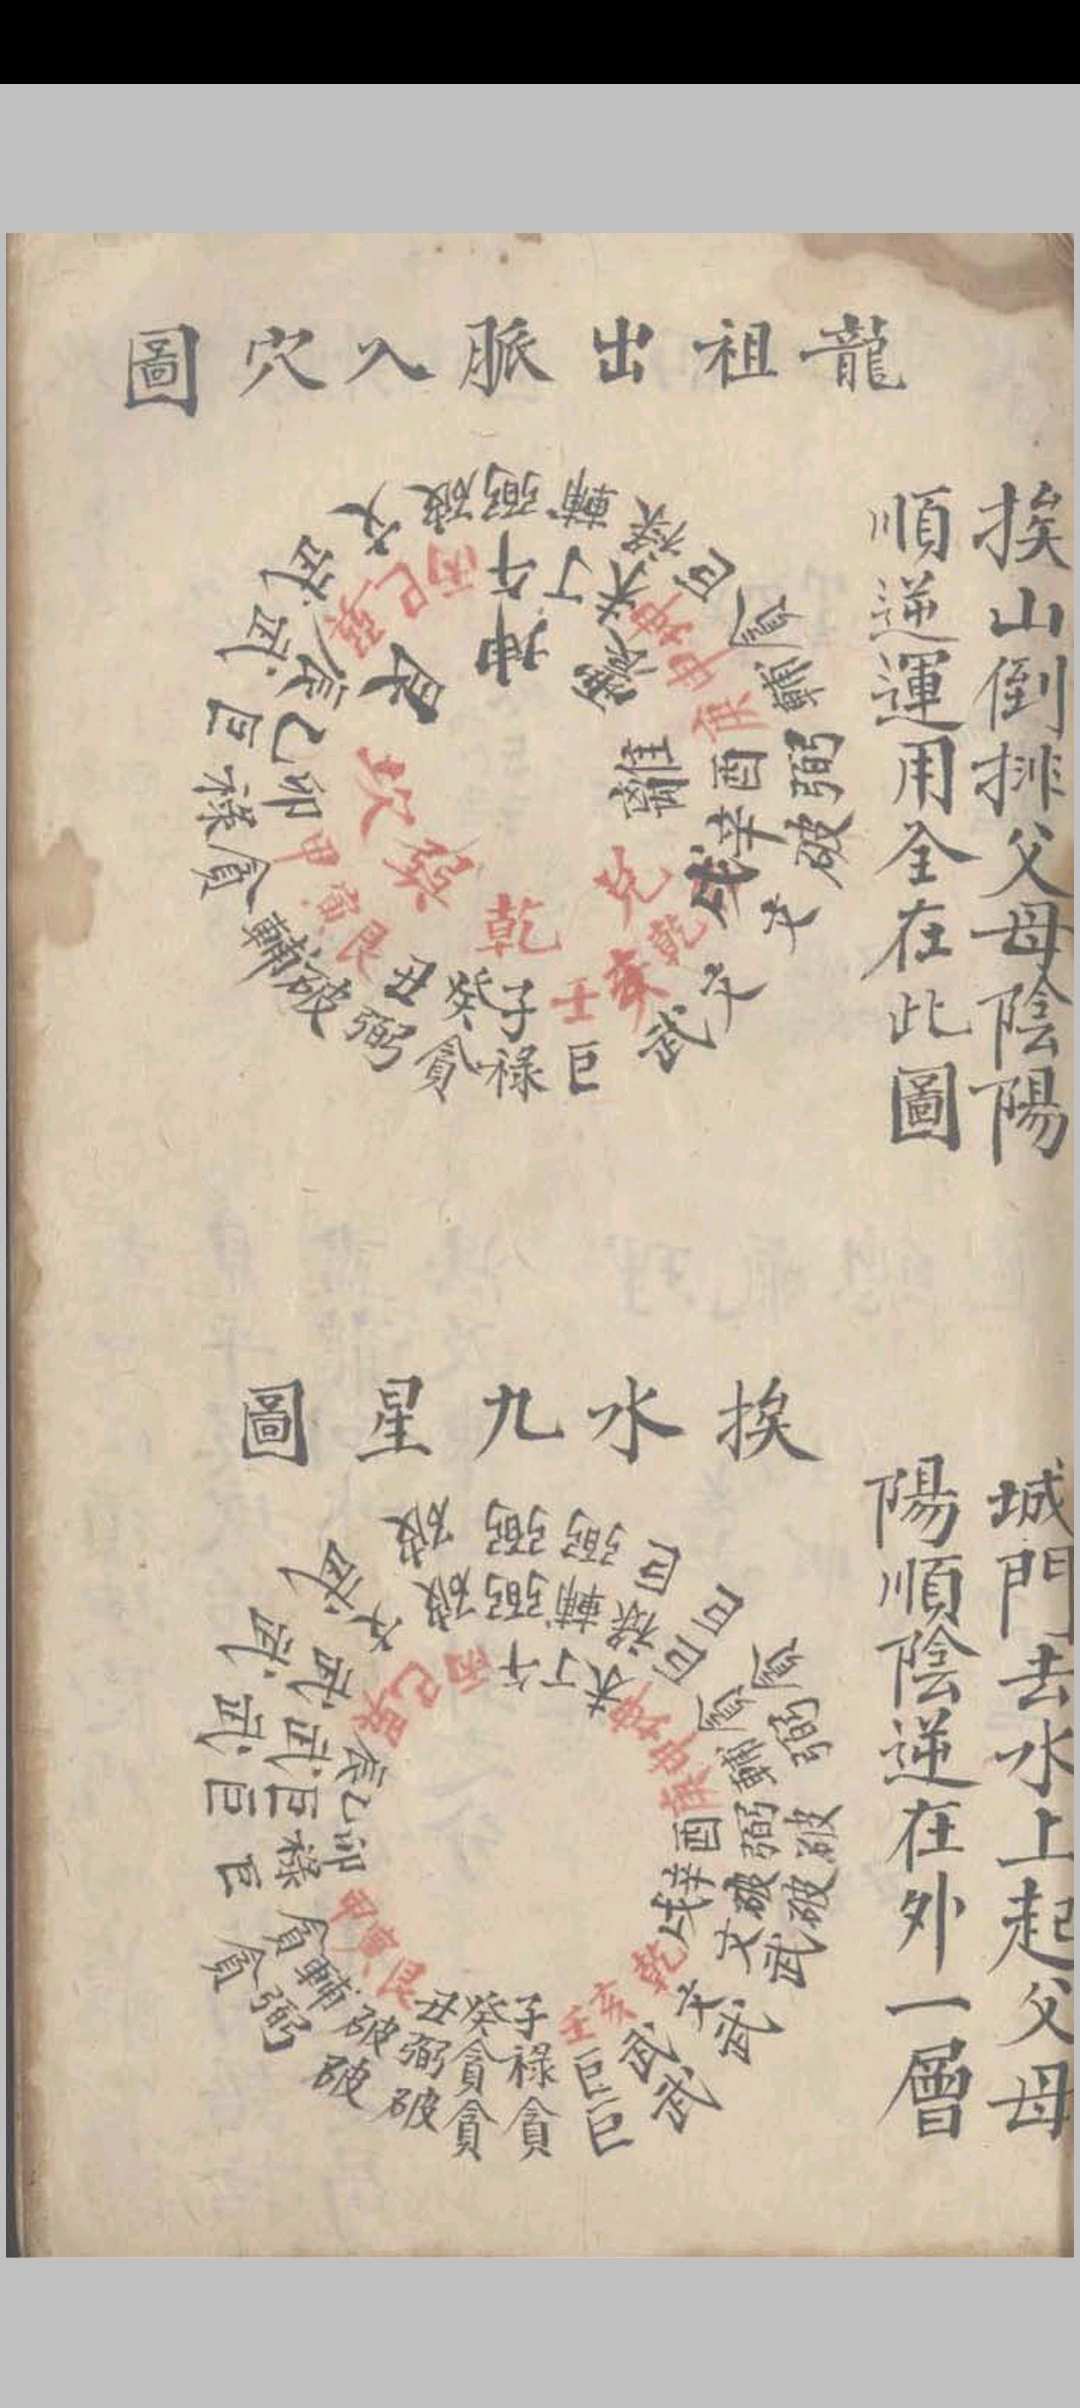 龍祖出脈入穴圖
挨山倒排父母陰陽
順逆運用全在此圖
輔禄巨貪輔弼破文文武巨禄貪弼破輔貪禄巨武武文破弼
午丁未坤申庚酉辛戌乾亥壬子癸丑艮寅甲卯乙辰巽巳丙
坤震離兌乾巽坎艮
挨水九星圖
城門去水上起父母
陽順陰逆在外一層
弼弼巨巨貪弼破破武武武巨貪貪破破弼貪巨巨武武武破
弼輔禄巨貪輔弼破文文武巨禄貪弼破輔貪禄巨武武文破
午丁未坤申庚酉辛戌乾亥壬子癸丑艮寅甲卯乙辰巽巳丙